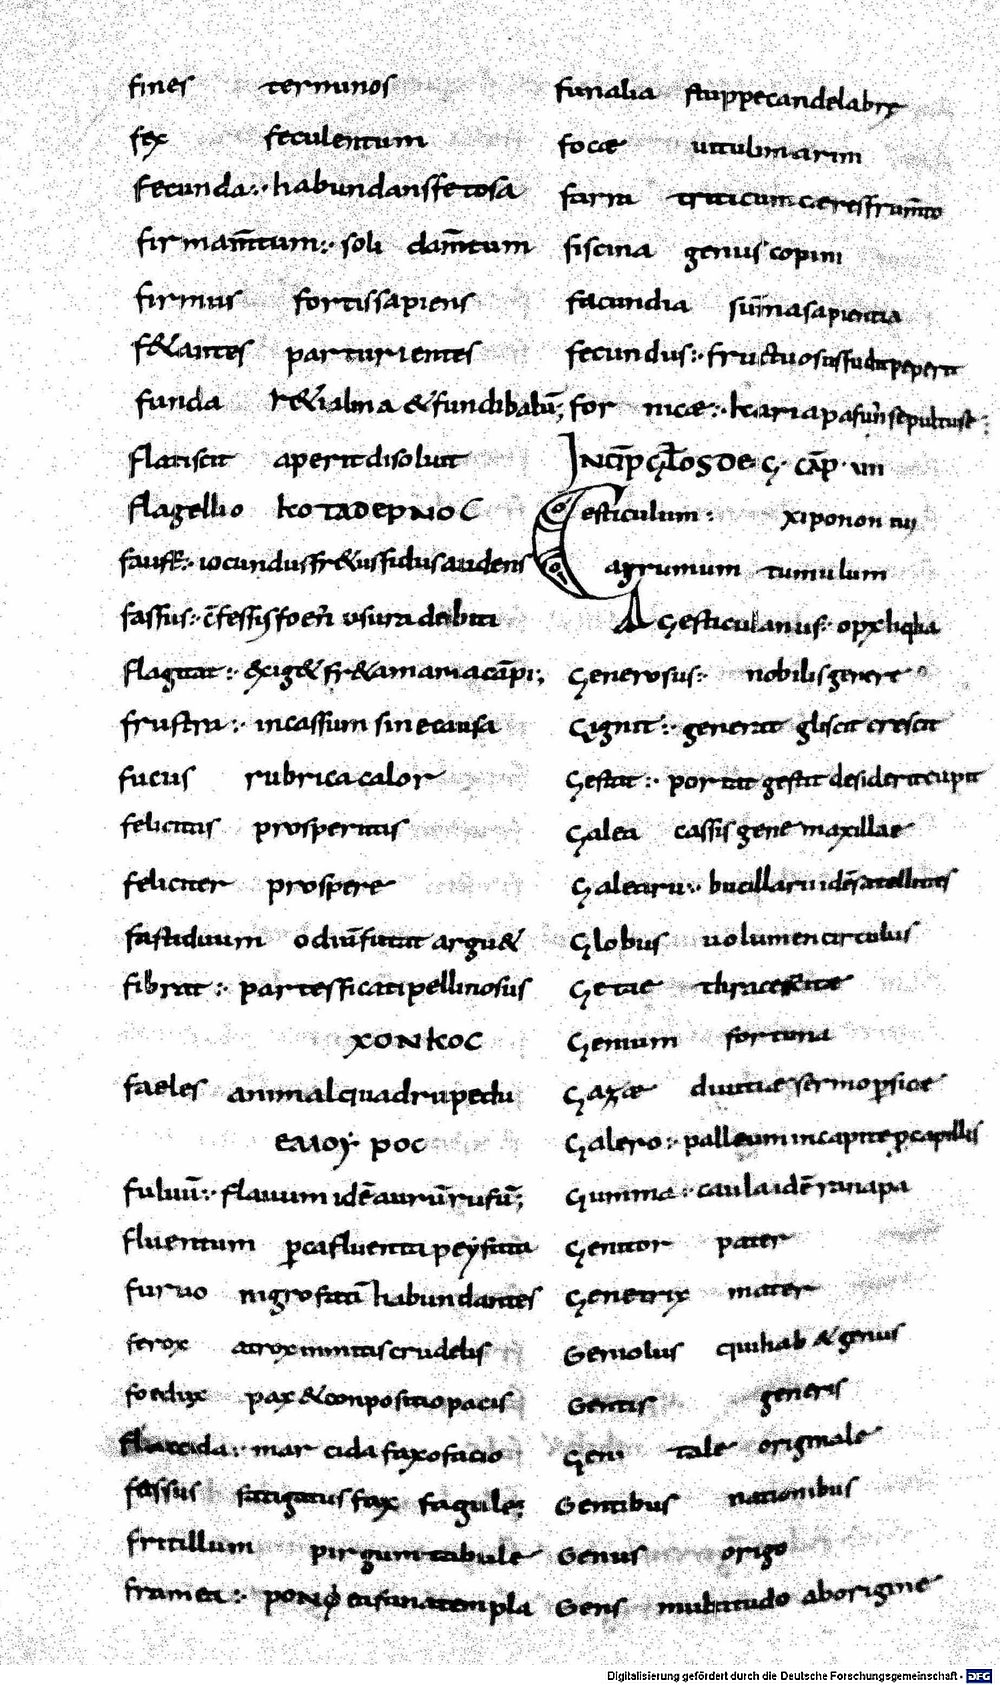 fines terminos
fex feculentum
fecunda:· habundans fetosa
firmam̄tum:· soli dam̄tum
firmus fortis sapiens
f&antes parturientes
funda r&ialina & fundibalū;
flatiscit aperit disoluit
flagellio
fauss:· iocundus fr&us fidus audens
fassus:· c̄fessus foen̄ usura debiti
flagitat:· exig& fr&a maria cāpi;
frustra:· incassum sine causa
fucus rubrica calor
felicitas prosperitas
feliciter prospere
fastiduum odiū futut argu&
fibrat:· partes ficati pellinosus
χονκος
faeles animal quadrupedu
ελλογ ρος
fuluū:· flauum idē aurū rufū;
fluentum
furuo nigro habundantes
ferox atrox inmitis crudelis
foedux pax & conpositio pacis
flaccida:· marcida faxo facio
fessus fatigatus fax fagule;
fritillum pirgum tabule
framea:·
funalia stuppe candelabrx
focae uitulimarini
farra triticum
fiscina genus copini
facundia sūma sapientia
fecundus:· fructuosus fudit peperit
for nicae:·
INCIP GLOS DE G · CAP · VII
Gesticulum:
Cagrumum tumulum
Agesticulanus:·
Generosus:· nobilis genere
Gignit:· generat gliscit crescit
Gestat:· portat gestit desiderat cupit
Galea cassis gene maxillae
Galearu:· bucillaru idē satellites
Globus uolumen circulus
Getae
Genium fortuna
Gazae diuitiae sermo psicae
Galero:· palleum in capite p capillis
Gumma:· caula idē ranapa
Genitor pater
Genetrix mater
Geniolus qui hab& genus
Gentis generis
Geni tale originale
Gentibus nationibus
Genus origo
Gens multitudo aborigine
Digitalisierung gefördert durch die Deutsche Forschungsgemeinschaft - DFG